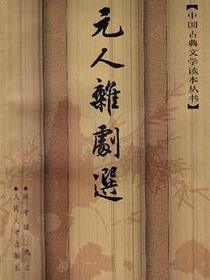 【中国古典文学读本丛书】
元人雜劇選
人民文学出版社